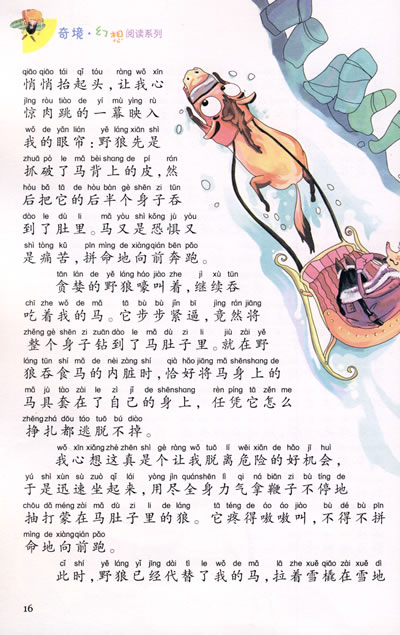 奇境·幻想阅读系列
qiāo qiāo tái qǐ tóu ràng wǒ xīn
悄悄抬起头，让我心
jīng ròu tiào de yí mù yìng rù
惊肉跳的一幕映入
wǒ de yǎn lián yě láng xiān shì
我的眼帘：野狼先是
zhuā pò le mǎ bèi shang de pí rán
抓破了马背上的皮，然
hòu bǎ tā de hòu bàn gè shēn zi tūn
后把它的后半个身子吞
dào le dù li mǎ yòu shì kǒng jù yòu
到了肚里。马又是恐惧又
shì tòng kǔ pīn mìng de xiàng qián bēn pǎo
是痛苦，拼命地向前奔跑。
tān lán de yě láng háo jiào zhe jì xù tūn
贪婪的野狼嚎叫着，继续吞
chī zhe wǒ de mǎ tā bù bù jǐn bī jìng rán jiāng
吃着我的马。它步步紧逼，竟然将
zhěng gè shēn zi zuān dào le mǎ dù zi li jiù zài yě
整个身子钻到了马肚子里。就在野
láng tūn shí mǎ de nèi zàng shí qià hǎo jiāng mǎ shēn shang de
狼吞食马的内脏时，恰好将马身上的
mǎ jù tào zài le zì jǐ de shēn shang rèn píng tā zěn me
马具套在了自己的身上，任凭它怎么
zhēng zhá dōu táo tuō bú diào
挣扎都逃脱不掉。
wǒ xīn xiǎng zhè zhēn shì gè ràng wǒ tuō lí wēi xiǎn de hǎo jī huì
我心想这真是个让我脱离危险的好机会，
yú shì xùn sù zuò qǐ lái yòng jìn quán shēn lì qì ná biān zi bù tíng de
于是迅速坐起来，用尽全身力气拿鞭子不停地
chōu dǎ méng zài mǎ dù zi li de láng tā téng de áo áo jiào bù dé bù pīn
抽打蒙在马肚子里的狼。它疼得嗷嗷叫，不得不拼
mìng de xiàng qián pǎo
命地向前跑。
cǐ shí yě láng yǐ jīng dài tì le wǒ de mǎ lā zhe xuě qiāo zài xuě dì
此时，野狼已经代替了我的马，拉着雪橇在雪地
16